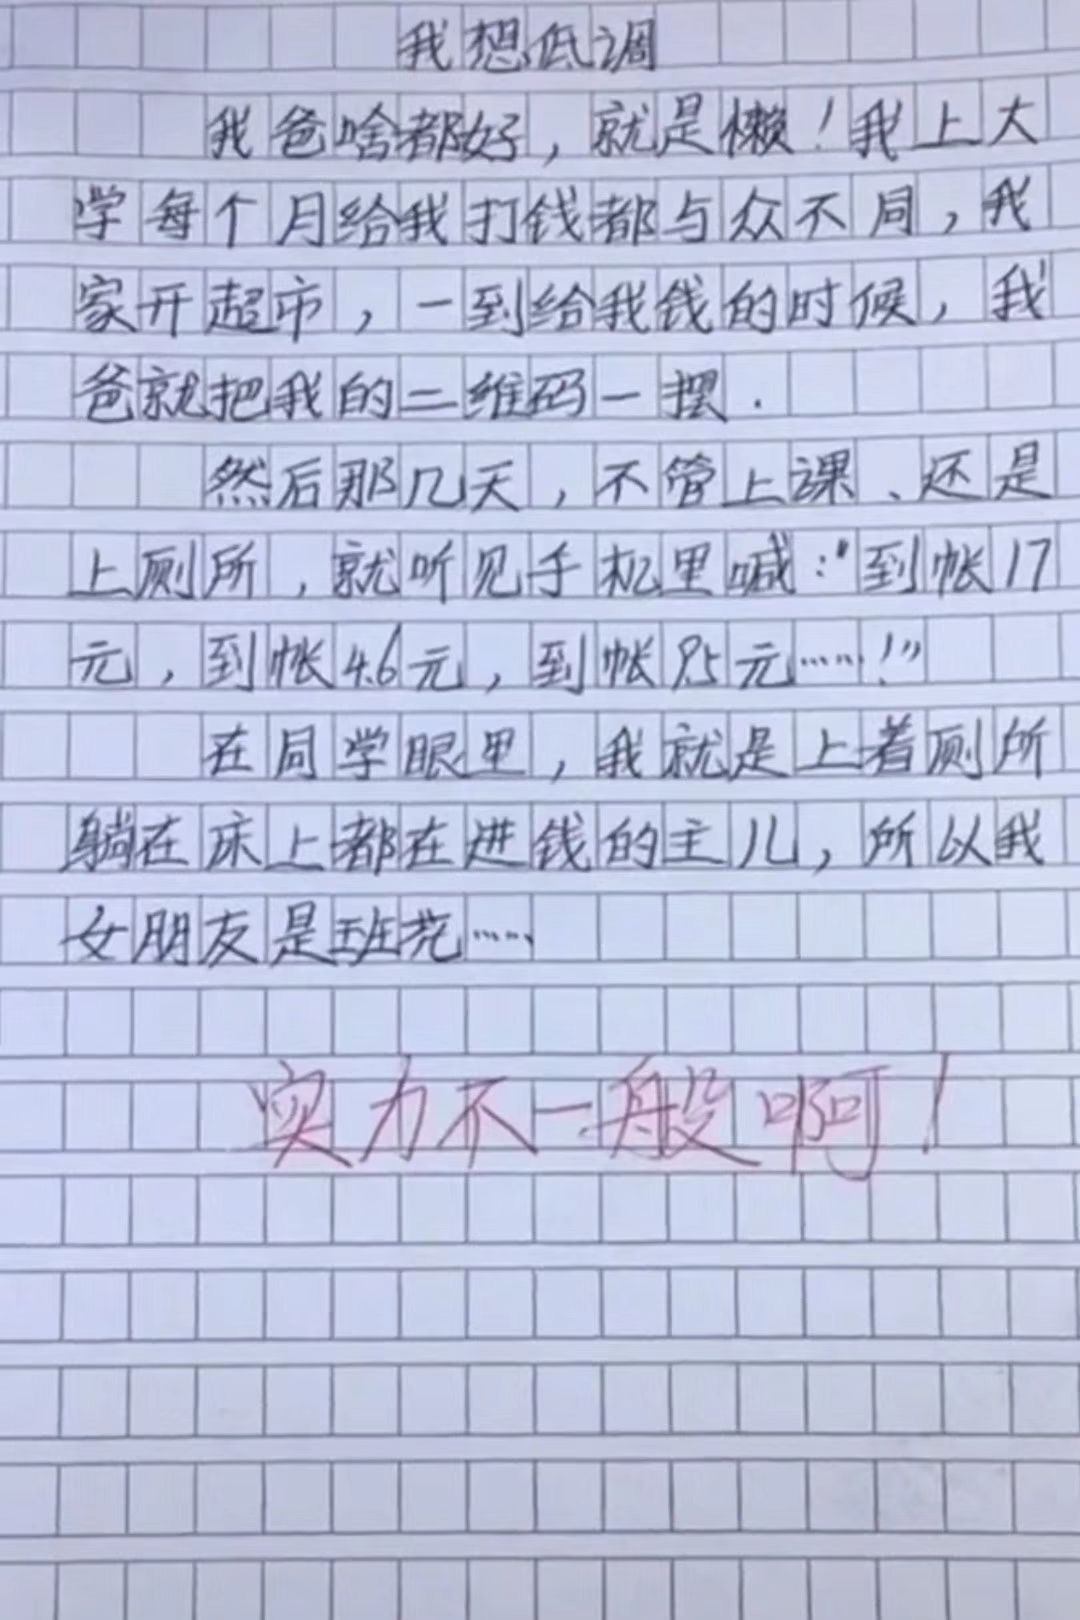 我想低调
我爸啥都好，就是懒！我上大
学每个月给我打钱都与众不同，我
家开超市，一到给我钱的时候，我
爸就把我的二维码一摆.
然后那几天，不管上课、还是
上厕所，就听见手机里喊："到帐17
元，到帐4.6元，到帐9.5元……！"
在同学眼里，我就是上着厕所
躺在床上都在进钱的主儿，所以我
女朋友是班花……
实力不一般啊！